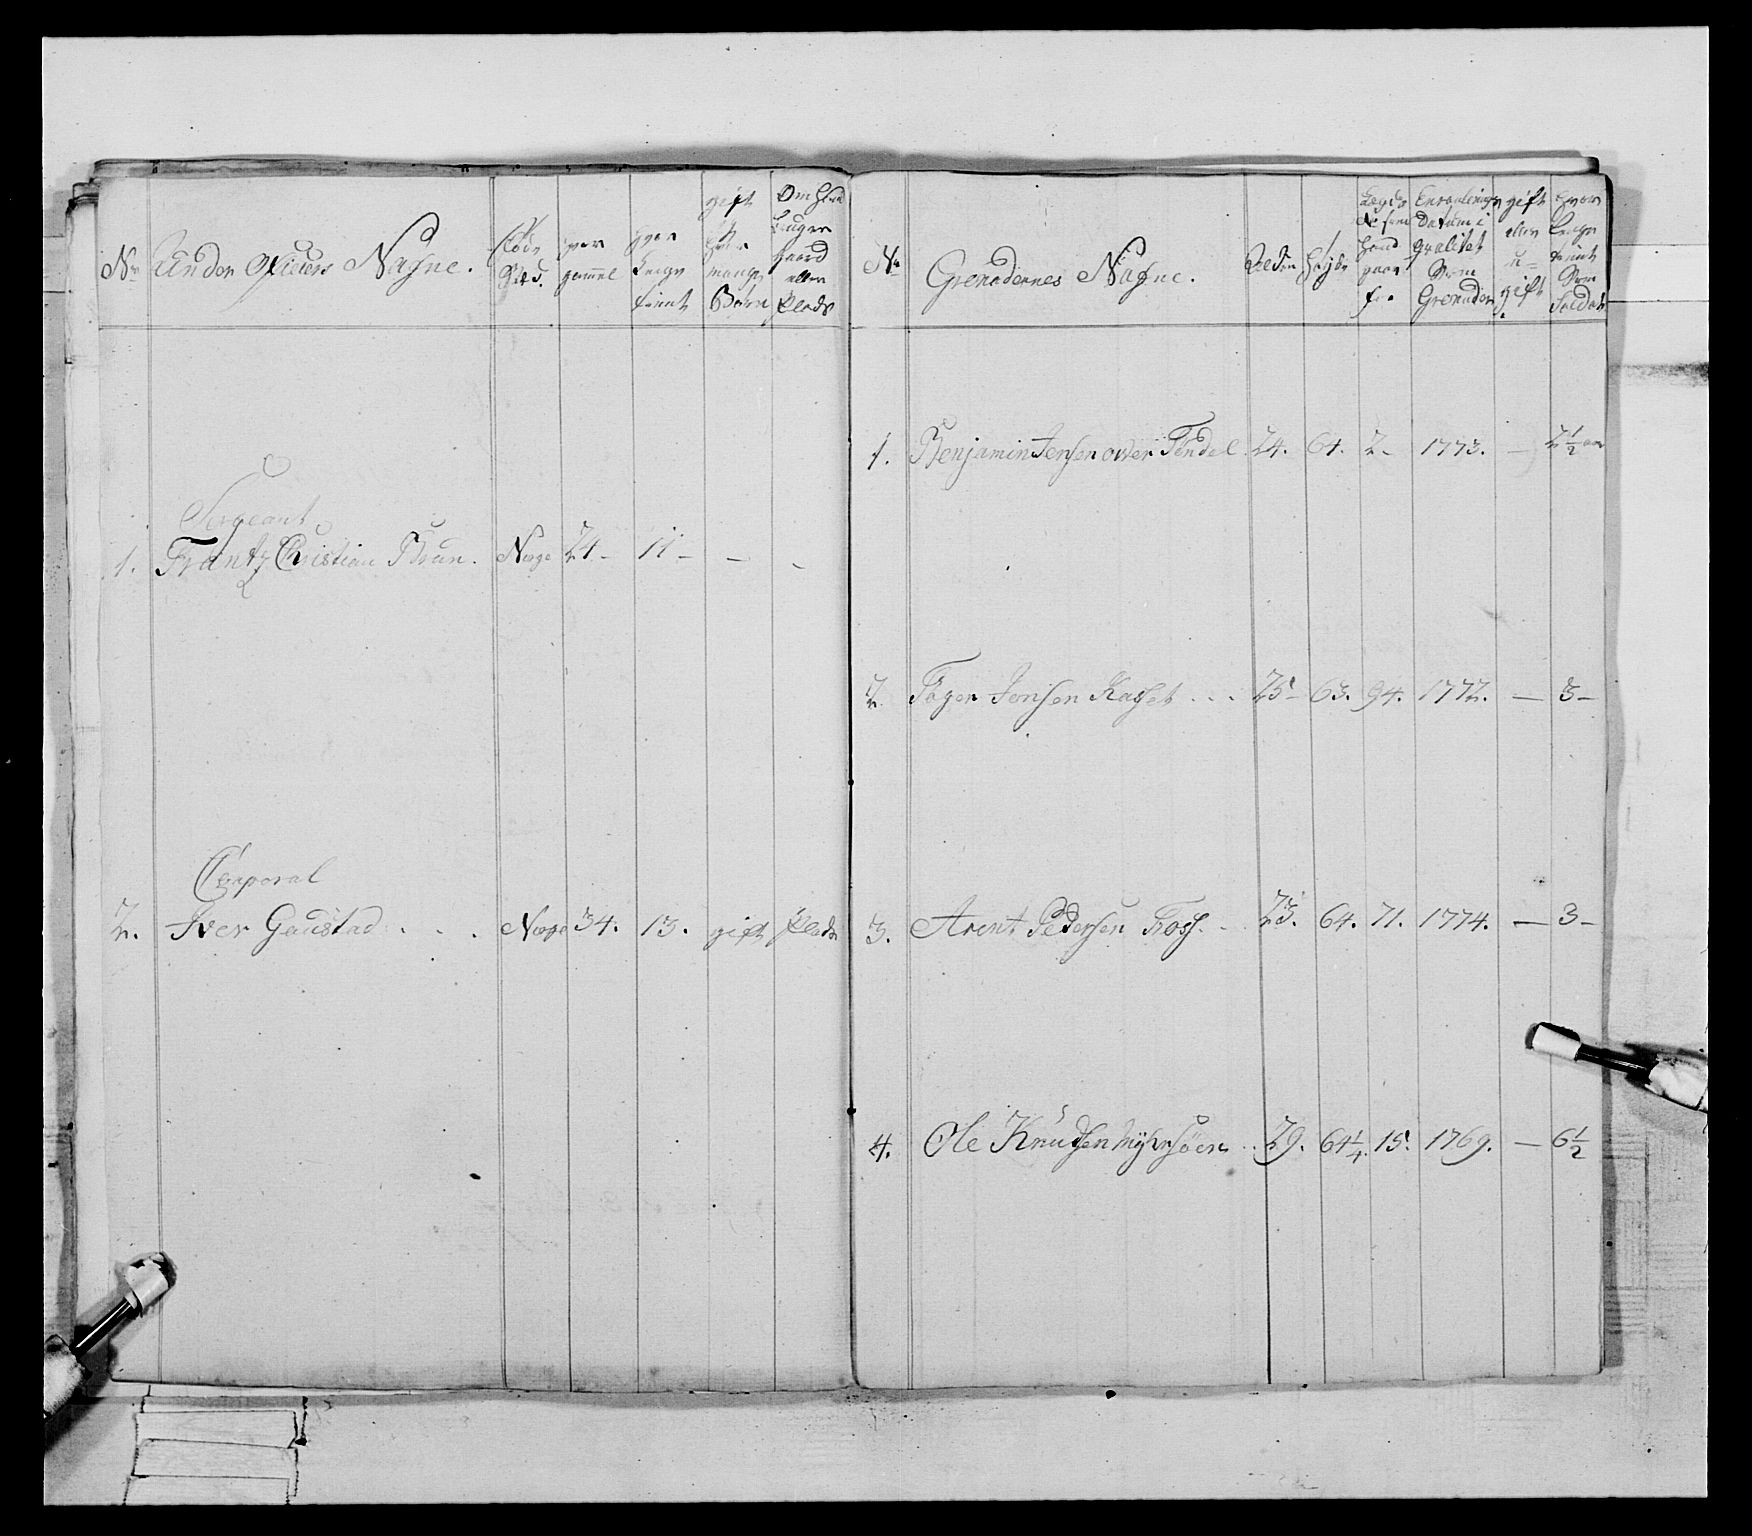 No Under Officiers Nafne.
føde Sted.
hvor gammel
hvor lenge tient
gift hvor mange Børn
Om hand bruger gaard eller Plads
Sergeant
1. Frantz Christian Brun. Norge 24 - 11 - - -
Corporal
2. Iver Gaustad . . . Norge 34. 13. gift Plads
No Grenadernes Nafne.
Alder
Høyde
Lægds No som hand gaar for
Enroulerings Datum i qvalitet Som Grenader
gift eller u=gift
hvor lenge tient Som Soldat
1. Benjamin Jensen over Tendel 24. 64. 2. 1773. - 2 1/2 aar
2. Toger Jensen Kasset . . . 25 - 63. 94. 1772. - 3 -
3. Arent Pedersen Foss . . 23. 64. 71. 1774. - 3 -
4. Ole Knudsen Myhrsøen . . 29. 64 1/4. 15. 1769. - 6 1/2